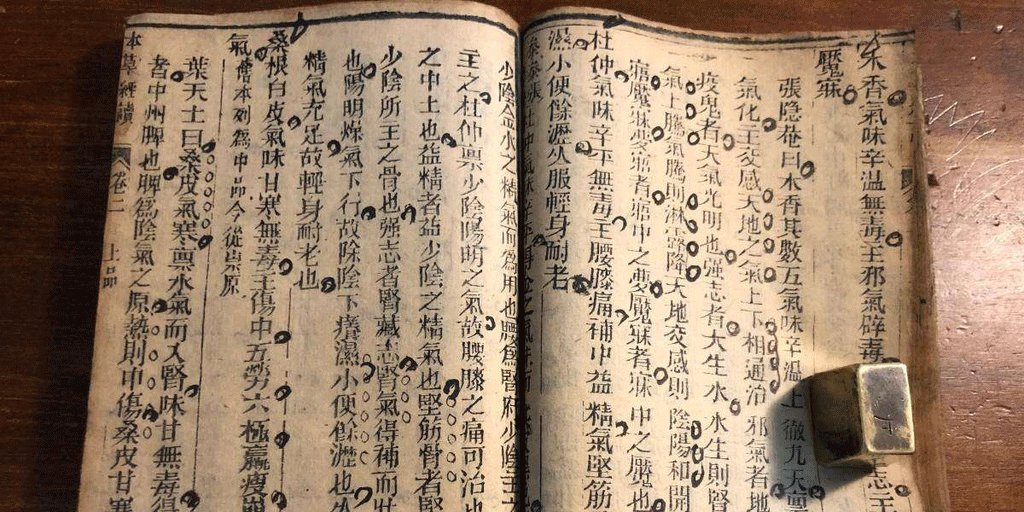 木香氣味辛溫無毒主邪氣辟毒
志主
魘寐
張隱菴曰木香其數五氣味辛溫上徹九天稟
氣化主交感天地之氣上下相通治邪氣者地
疫鬼者天氣光明也強志者天生水水生則腎
氣上騰氣騰則淋露降天地交感則陰陽和開
痞魘寐夢寤者寤中之夢魘寐者寐中之魘也
杜仲氣味辛平無毒主腰膝痛補中益精氣堅筋
濕小便餘瀝久服輕身耐老
少陰金水之精氣而為用也腰為腎府少陰主之
主之杜仲稟少陰陽明之氣故腰膝之痛可治也
之中土也益精者益少陰之精氣也堅筋骨者堅
少陰所主之骨也強志者腎藏志腎氣得補而壯
也陽明燥氣下行故除陰下癢濕小便餘瀝也久
精氣充足故輕身耐老也
桑根白皮氣味甘寒無毒主傷中五勞六極羸瘦
氣舊本列為中品今從崇原
葉天士曰桑皮氣寒稟水氣而入腎味甘無毒得
者中州脾也脾為陰氣之原熱則中傷桑皮甘寒
本草經讀
卷二
上品